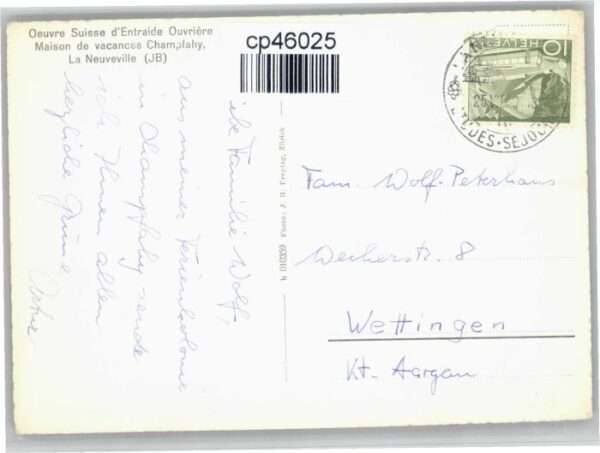 Oeuvre Suisse d'Entraide Ouvrière
Maison de vacances Champfahy,
La Neuveville (JB)
cp46025
Familie Wolf,
aus meiner Ferienkolonie
in Champfahy sende
ich Ihnen allen
herzliche Grüsse
N 010339 Photo: J. H. Freytag, Zürich
Fam. Wolf-Peterhans
Weiherstr. 8
Wettingen
Kt. Aargau
HELVETIA
10
SÉJOUR